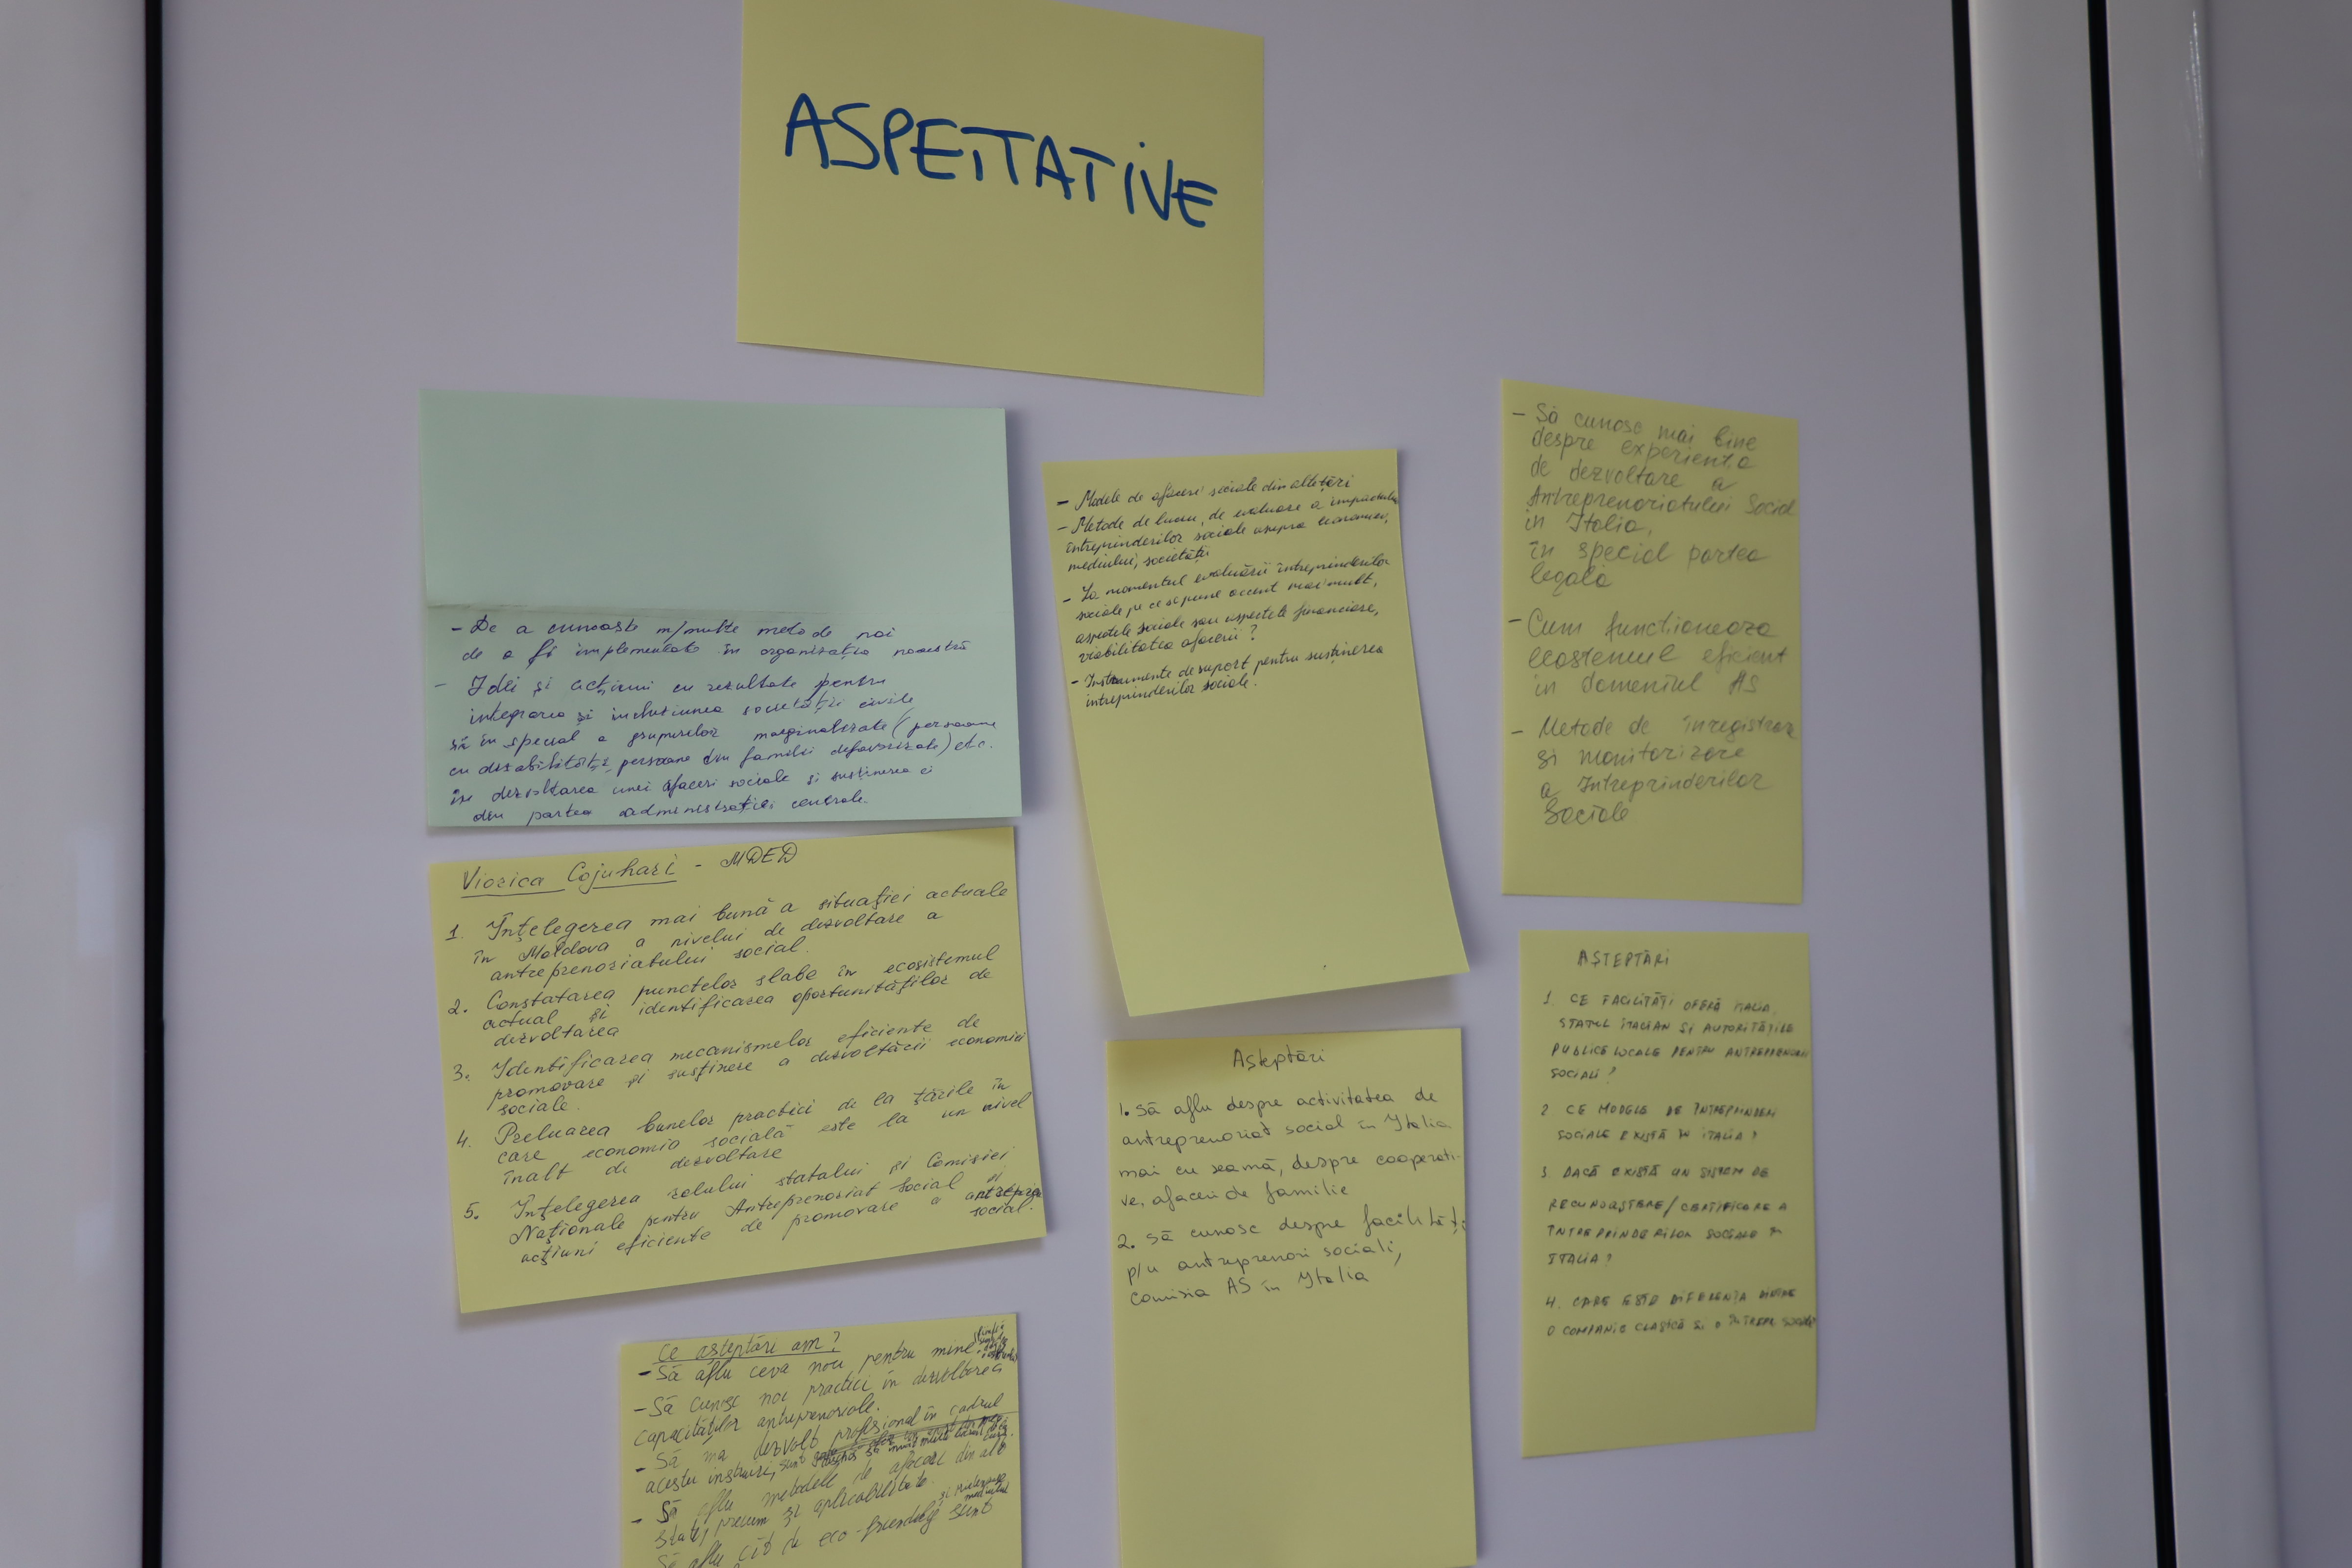 ASPETTATIVE
- De a cunoaște m/multe metode noi
de a fi implementate în organizația noastră
- Idei și acțiuni cu rezultate pentru
integrarea și incluziunea societății civile
să în special a grupurilor marginalizate (persoane
cu dizabilități, persoane din familii defavorizate) etc.
în dezvoltarea unei afaceri sociale și susținerea ei
din partea administrației centrale.
Viorica Cojuhari - MDED
1. Înțelegerea mai bună a situației actuale
în Moldova a nivelui de dezvoltare a
antreprenoriatului social.
2. Constatarea punctelor slabe în ecosistemul
actual și identificarea oportunităților de
dezvoltarea
3. Identificarea mecanismelor eficiente de
promovare și susținere a dezvoltării economiei
sociale.
4. Preluarea bunelor practici de la țările în
care economia socială este la un nivel
înalt de dezvoltare
5. Înțelegerea rolului statului și Comisiei
Naționale pentru Antreprenoriat Social și
acțiuni eficiente de promovare a
social.
Ce așteptări am?
- Să aflu ceva nou pentru mine
- Să cunosc noi practici în dezvoltarea
capacităților antreprenoriale.
- Să mă dezvolt profesional în cadrul
acestu instruiri, sunt
- Să aflu metodele de afaceri din alte
state, precum și aplicabilitate.
Să aflu cît de eco-friendly sunt
- Modele de afaceri sociale din alte țări
- Metode de lucru, de evaluare a impactului
întreprinderilor sociale asupra economiei,
mediului, societății
- La momentul evaluării întreprinderilor
sociale pe ce se pune accent mai mult,
aspectele sociale sau aspectele financiare,
viabilitatea afacerii?
- Instrumente de suport pentru susținerea
întreprinderilor sociale.
Așteptări
1. Să aflu despre activitatea de
antreprenoriat social în Italia
mai cu seamă, despre cooperati-
ve, afaceri de familie
2. Să cunosc despre facilități
p/u antreprenori sociali,
comisia AS în Italia
- Să cunosc mai bine
despre experiența
de dezvoltare a
Antreprenoriatului Social
in Italia,
în special partea
legală
- Cum funcționeaza
ecostemul eficient
in domeniul AS
- Metode de înregistrare
și monitorizare
a Intreprinderilor
Sociale
AȘTEPTĂRI
1. CE FACILITĂȚI OFERĂ ITALIA,
STATUL ITALIAN ȘI AUTORITĂȚILE
PUBLICE LOCALE PENTRU ANTREPRENORII
SOCIALI?
2. CE MODELE DE ÎNTREPRINDERI
SOCIALE EXISTĂ ÎN ITALIA?
3. DACĂ EXISTĂ UN SISTEM DE
RECUNOAȘTERE/CERTIFICARE A
ÎNTREPRINDERILOR SOCIALE ÎN
ITALIA?
4. CARE ESTE DIFERENȚA DINTRE
O COMPANIE CLASICĂ ȘI O ÎNTREPR SOCIALĂ